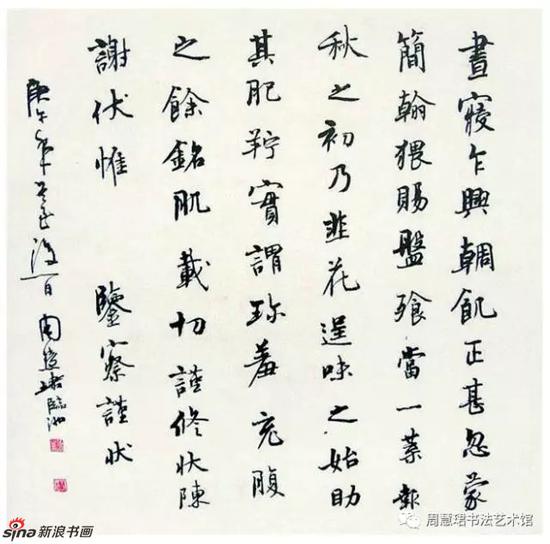 晝寢乍興輖飢正甚忽蒙
簡翰猥賜盤飧當一葉報
秋之初乃韭花逞味之始助
其肥羜實謂珍羞充腹
之餘銘肌載切謹修狀陳
謝伏惟 鑒察謹狀
庚午年 周慧珺臨池
sina新浪书画
周慧珺书法艺术馆